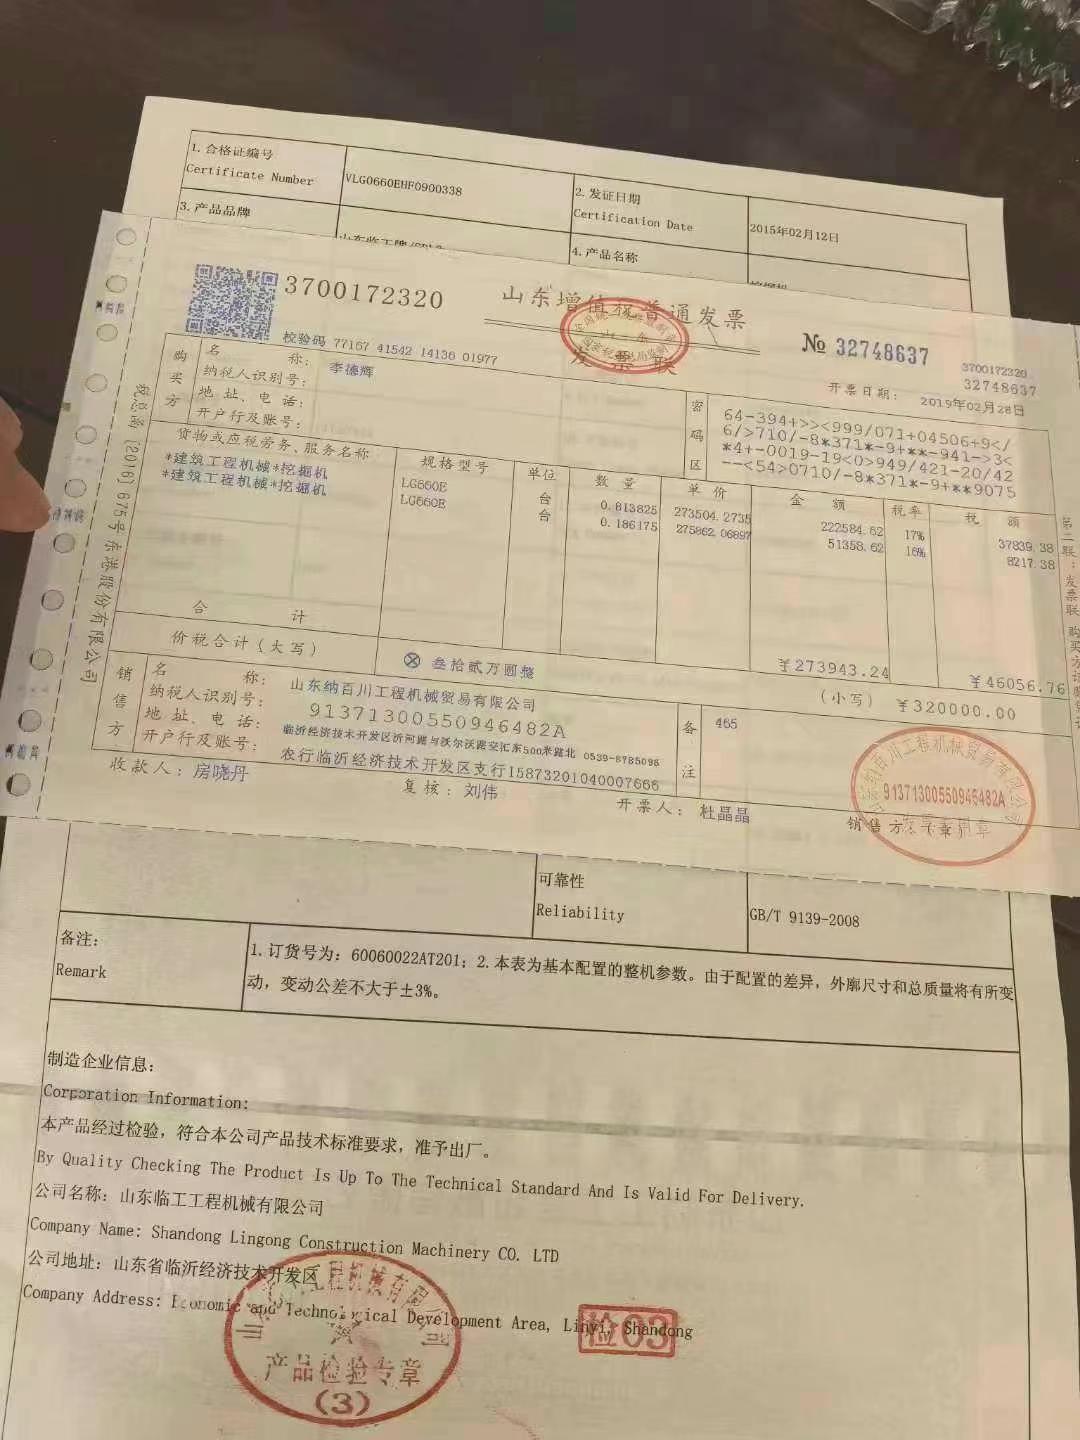 1.合格证编号
Certificate Number
VLG0660EHF0900338
2.发证日期
Certification Date
2015年02月12日
3.产品品牌
4.产品名称
3700172320
山东增值税普通发票
发票联
№ 32748637
3700172320
32748637
校验码 77167 41542 14136 01977
开票日期: 2019年02月28日
购买方
名 称: 李德辉
纳税人识别号:
地 址、电 话:
开户行及账号:
密码区
64-394+>><999/071+04506+9</
6/>710/-8*371*-9+**-941->3<
*4+-0019-19<0>949/421-20/42
--<54>0710/-8*371*-9+**9075
货物或应税劳务、服务名称 规格型号 单位 数 量 单 价 金 额 税率 税 额
*建筑工程机械*挖掘机 LG660E 台 0.813825 273504.2735 222584.62 17% 37839.38
*建筑工程机械*挖掘机 LG660E 台 0.186175 275862.06897 51358.62 16% 8217.38
合 计 ¥273943.24 ¥46056.76
价税合计(大写) ⊗ 叁拾贰万圆整 (小写) ¥320000.00
销售方
名 称: 山东纳百川工程机械贸易有限公司
纳税人识别号: 91371300550946482A
地 址、电 话: 临沂经济技术开发区沂河路与沃尔沃路交汇东500米路北 0539-8785098
开户行及账号: 农行临沂经济技术开发区支行15873201040007666
备注
465
收款人: 房晓丹
复核: 刘伟
开票人: 杜晶晶
销售方:(章)
91371300550946482A
发票专用章
税总函〔2016〕675号东港股份有限公司
第二联:发票联 购买方
可靠性
Reliability
GB/T 9139-2008
备注:
Remark
1.订货号为: 60060022AT201; 2.本表为基本配置的整机参数。由于配置的差异,外廓尺寸和总质量将有所变
动,变动公差不大于±3%。
制造企业信息:
Corporation Information:
本产品经过检验,符合本公司产品技术标准要求,准予出厂。
By Quality Checking The Product Is Up To The Technical Standard And Is Valid For Delivery.
公司名称: 山东临工工程机械有限公司
Company Name: Shandong Lingong Construction Machinery CO. LTD
公司地址: 山东省临沂经济技术开发区
Company Address: Economic and Technological Development Area, Linyi, Shandong
产品检验专章
(3)
检03